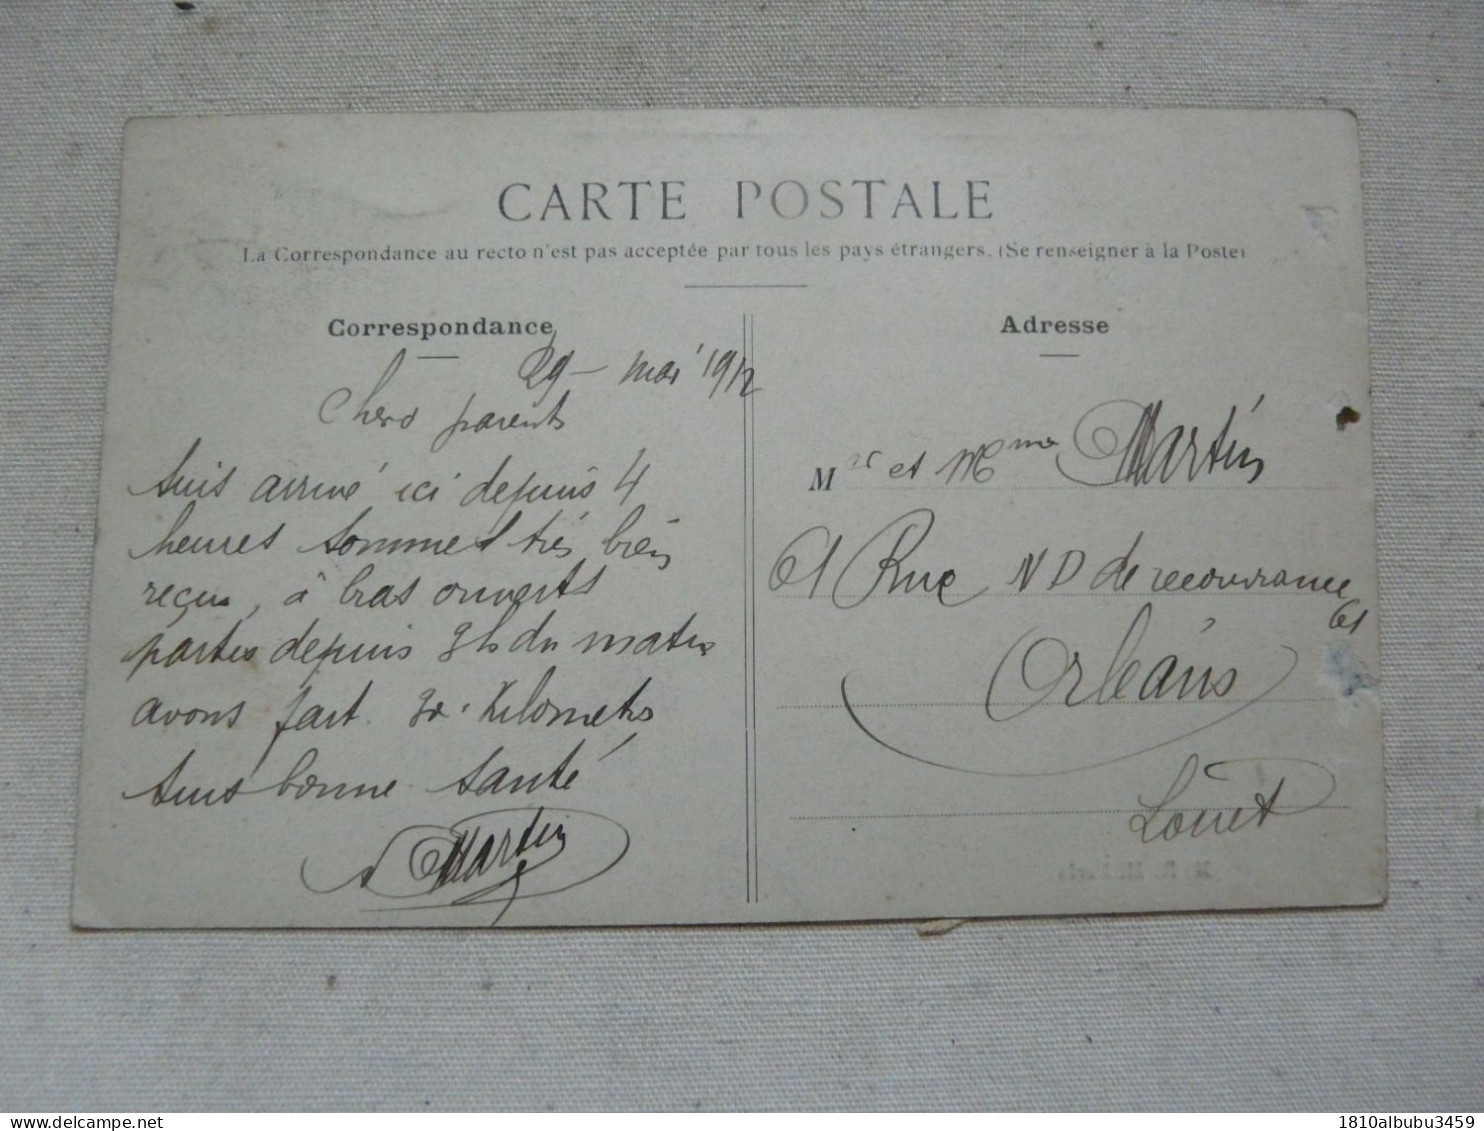 CARTE POSTALE
La Correspondance au recto n'est pas acceptée par tous les pays étrangers. (Se renseigner à la Poste)
Correspondance
29 - mai 1912
Chers parents
Suis arrivé ici depuis 4
heures sommes très bien
reçus, à bras ouverts
partis depuis 3h du matin
avons fait 30. Kilomets
Suis bonne santé
Martin
Adresse
Mr et Mme Martin
61 Rue N D de recouvrance
61
Orléans
Loiret
1810albubu3459